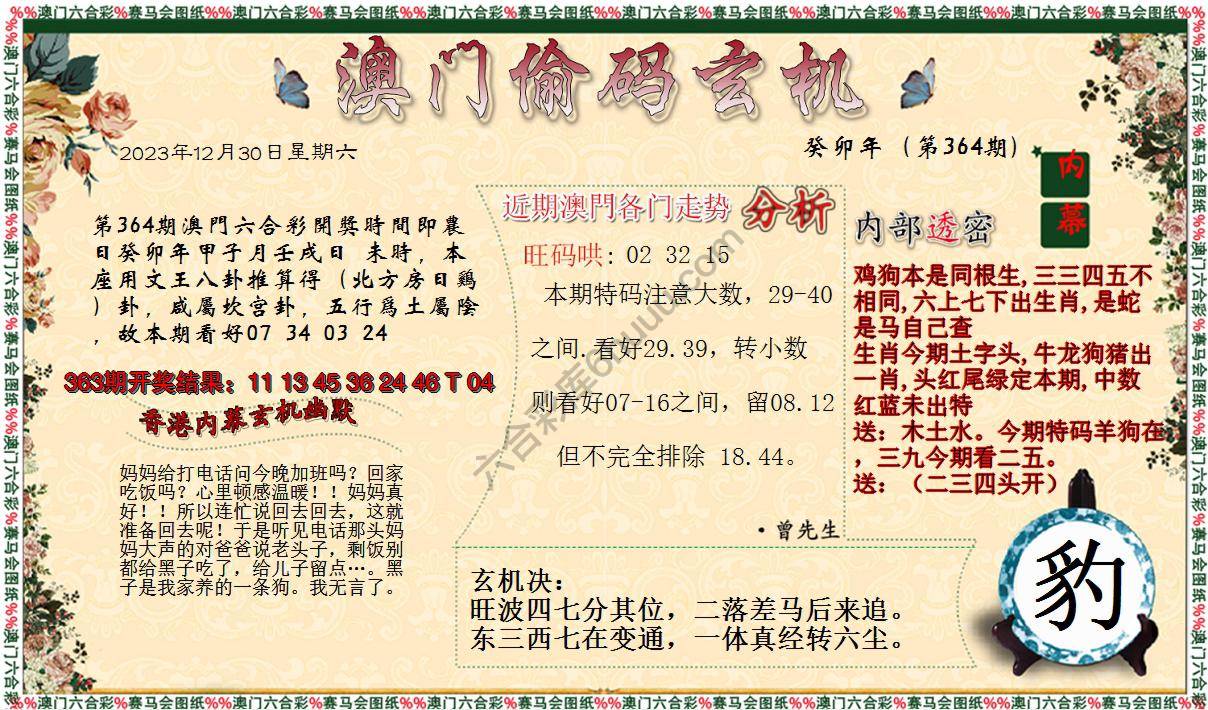 %%澳门六合彩%赛马会图纸%%澳门六合彩%赛马会图纸%%澳门六合彩%赛马会图纸%%澳门六合彩%赛马会图纸%%澳门六合彩%赛马会图纸%%澳门六合彩%赛马会图纸
澳门偷码玄机
2023年12月30日星期六
癸卯年（第364期）
内幕
第364期澳門六合彩開獎時間即農
日癸卯年甲子月壬戌日 未時，本
座用文王八卦推算得（北方房日鷄
）卦，咸屬坎宫卦，五行爲土屬陰
，故本期看好07 34 03 24
363期开奖结果：11 13 45 36 24 46 T 04
香港内幕玄机幽默
妈妈给打电话问今晚加班吗？回家
吃饭吗？心里顿感温暖！！妈妈真
好！！所以连忙说回去回去，这就
准备回去呢！于是听见电话那头妈
妈大声的对爸爸说老头子，剩饭别
都给黑子吃了，给儿子留点…。黑
子是我家养的一条狗。我无言了。
近期澳門各门走势 分析
旺码哄：02 32 15
本期特码注意大数，29-40
之间.看好29.39，转小数
则看好07-16之间，留08.12
但不完全排除 18.44。
·曾先生
内部透密
鸡狗本是同根生,三三四五不
相同,六上七下出生肖,是蛇
是马自己查
生肖今期土字头,牛龙狗猪出
一肖,头红尾绿定本期,中数
红蓝未出特
送：木土水。今期特码羊狗在
，三九今期看二五。
送：（二三四头开）
玄机决：
旺波四七分其位，二落差马后来追。
东三西七在变通，一体真经转六尘。
豹
%%澳门六合彩%赛马会图纸%%澳门六合彩%赛马会图纸%%澳门六合彩%赛马会图纸%%澳门六合彩%赛马会图纸%%澳门六合彩%赛马会图纸%%澳门六合彩%赛马会图纸